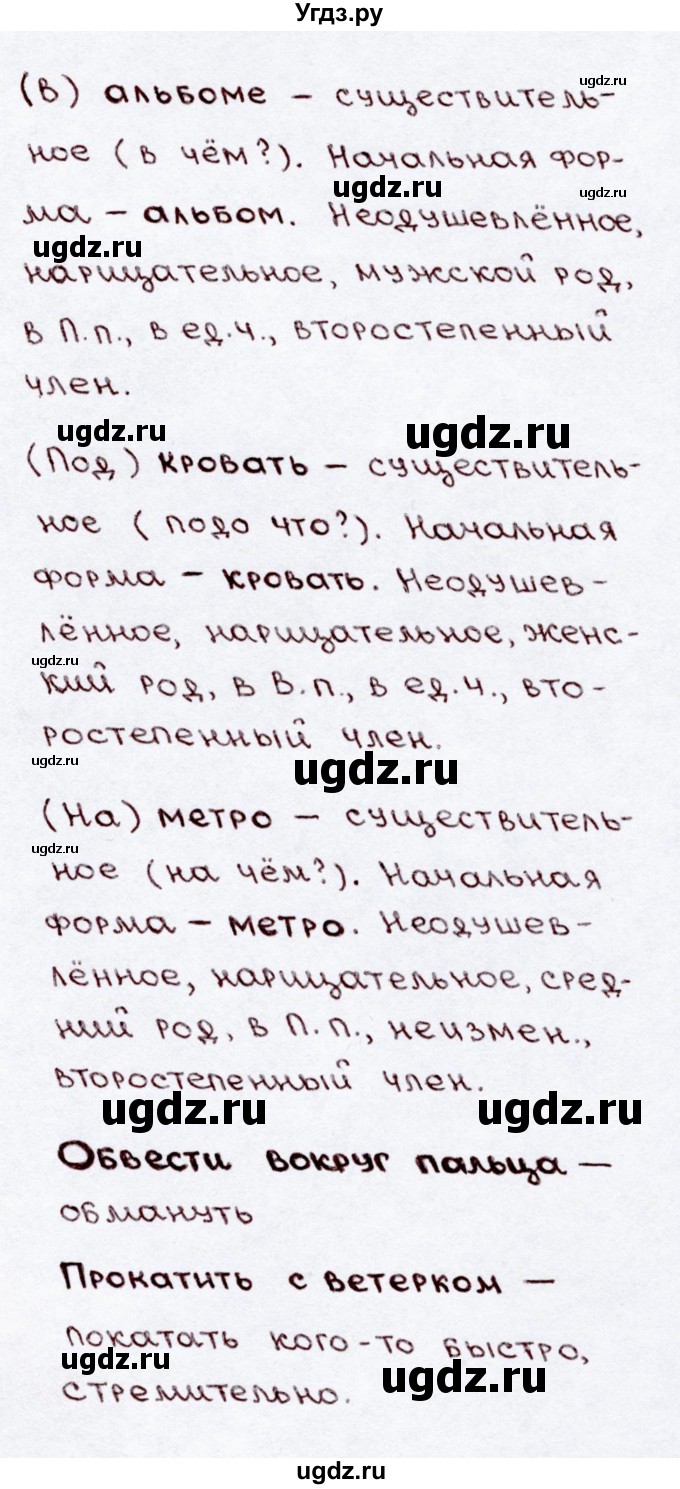 Угдз.ру
ugdz.ru
(в) альбоме – существитель-
ное (в чём?). Начальная фор-
ugdz.ru
ugdz.ru
ма – альбом. Неодушевлённое,
ugdz.ru
нарицательное, мужской род,
в П.п., в ед.ч., второстепенный
член.
ugdz.ru
ugdz.ru
(Под) кровать – существитель-
ное (подо что?). Начальная
форма – кровать. Неодушев-
лённое, нарицательное, женс-
ugdz.ru
кий род, в В.п., в ед.ч., вто-
ростепенный член.
ugdz.ru
ugdz.ru
(На) метро – существитель-
ugdz.ru
ное (на чём?). Начальная
форма – метро. Неодушев-
лённое, нарицательное, сред-
ний род, в П.п., неизмен.,
второстепенный член.
ugdz.ru
ugdz.ru
Обвести вокруг пальца –
обмануть
Прокатить с ветерком –
покатать кого-то быстро,
ugdz.ru
ugdz.ru
стремительно.
ugdz.ru